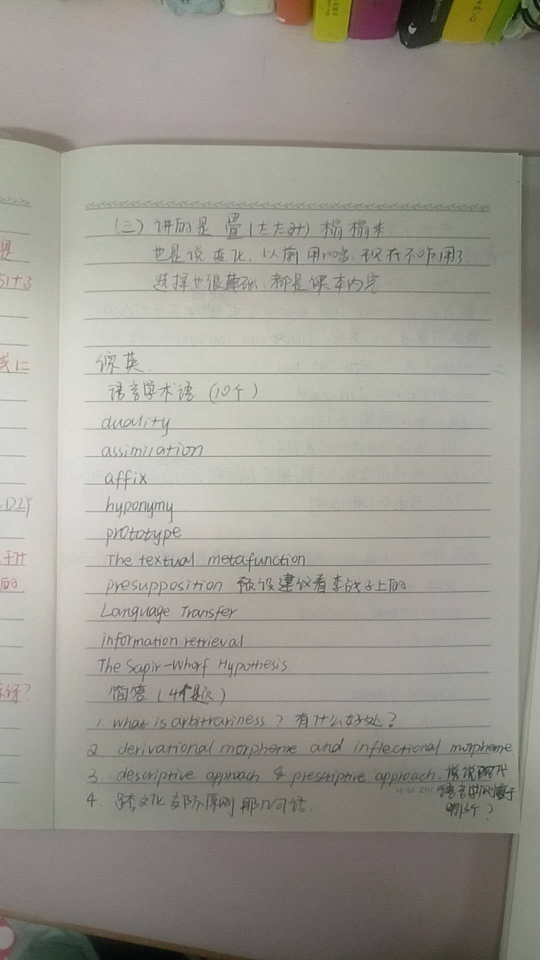 (三) 讲的是 畳(たたみ) 榻榻米
也是说变化, 以前用 现在不咋用了
选择也很基础, 都是课本内容
综英
语言学术语 (10个)
duality
assimilation
affix
hyponymy
prototype
The textual metafunction
presupposition 预设建议看李战子上的
Language Transfer
information retrieval
The Sapir-Whorf Hypothesis
简答 (4个题)
1. what is arbitrariness? 有什么好处?
2 derivational morpheme and inflectional morpheme
3. descriptive approach & prescriptive approach.
语言学 哪个?
4. 跨文化交际原则 那几句话.
是
51+3